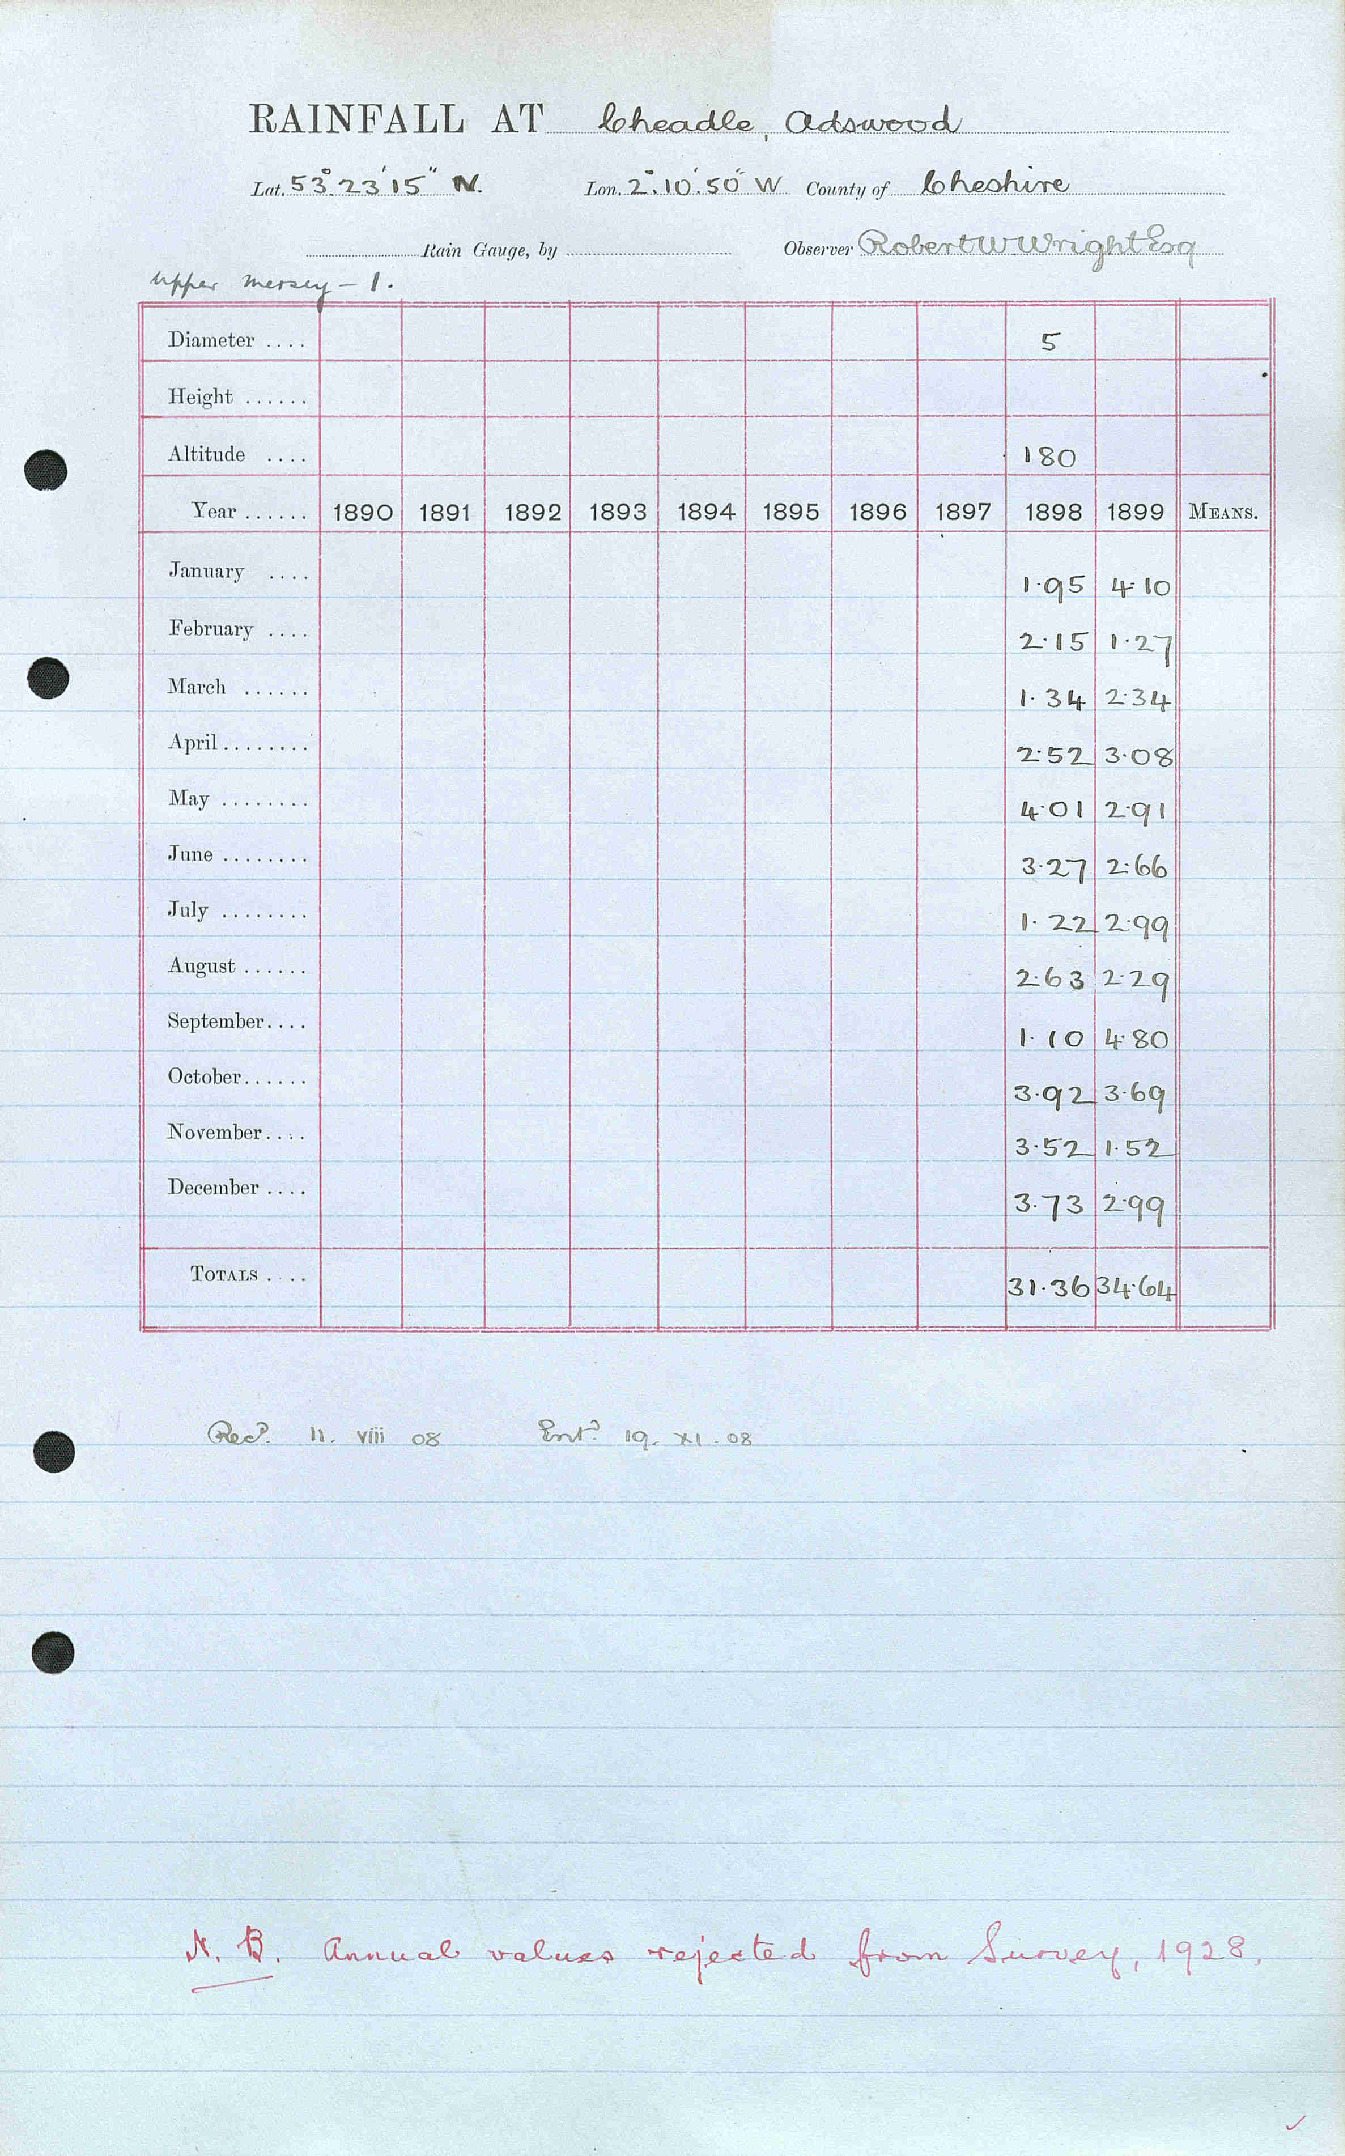 RAINFALL AT Cheadle, Adswood
Lat. 53° 23' 15" N. Lon. 2°. 10'. 50" W County of Cheshire
Rain Gauge, by Observer Robert W Wright Esq
Upper Mersey – 1.
Diameter .... 5
Height ......
Altitude .... 180
Year ...... 1890 1891 1892 1893 1894 1895 1896 1897 1898 1899 MEANS.
January .... 1·95 4·10
February .... 2·15 1·27
March ...... 1·34 2·34
April ........ 2·52 3·08
May ........ 4·01 2·91
June ........ 3·27 2·66
July ........ 1·22 2·99
August ...... 2·63 2·29
September.... 1·10 4·80
October...... 3·92 3·69
November.... 3·52 1·52
December .... 3·73 2·99
TOTALS .... 31·36 34·64
Recd. 11. viii 08 Entd. 19. XI. 08
N. B. Annual values rejected from Survey, 1928.